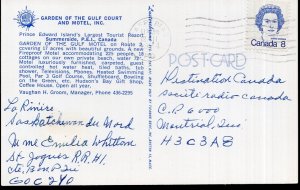 GARDEN OF THE GULF COURT
AND MOTEL, INC.
Prince Edward Island's Largest Tourist Resort
Summerside, P.E.I., Canada
GARDEN OF THE GULF MOTEL on Route 2,
covering 17 acres of beautiful grounds. A new
cottages on our own private beach, water 72°,
near luxuriously furnished, carpeted, guest
controlled, hot water heat, tiled baths, tub
shower, Televisions, Phones, Heated Swimming
Pool, Par 3 Golf Course, Shuffleboard, Bowling
on the Green, Souvenir and Bay Gift Shop.
Coffee House. Open all year.
Vaughan H. Groom, Manager, Phone 436-2295
POST CARD
Canada 8
Destination Canada
societe radio canada
C.P. 6000
Montreal, Que
H3C 3A8
La Rivière
Saskatchewan du Nord
Mme Emilia Whitton
St. Jacques R.R. #1
Cte. Bon
G0C 2Y0